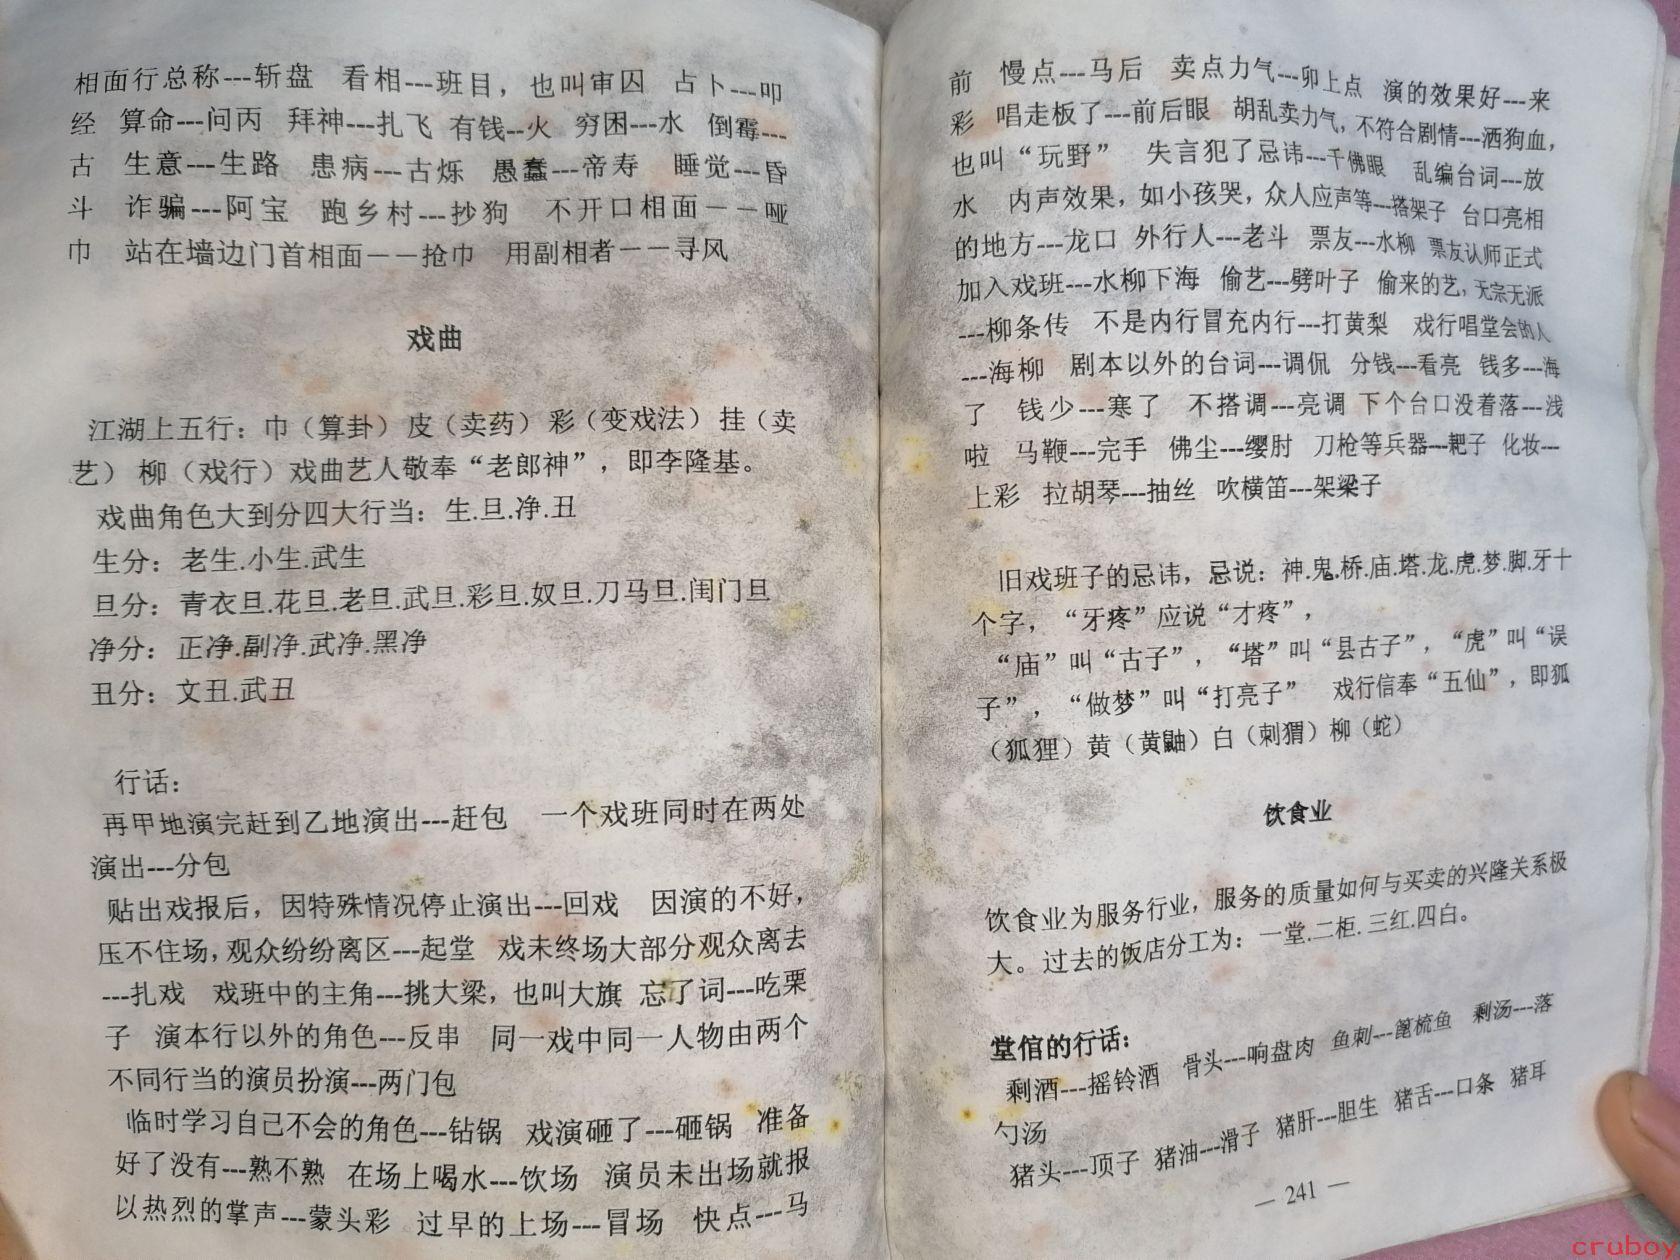 相面行总称---斩盘 看相---班目，也叫审囚 占卜---叩
经 算命---问丙 拜神---扎飞 有钱--火 穷困---水 倒霉---
古 生意---生路 患病---古烁 愚蠢---帝寿 睡觉---昏
斗 诈骗---阿宝 跑乡村---抄狗 不开口相面－－哑
巾 站在墙边门首相面－－抢巾 用副相者－－寻风
戏曲
江湖上五行：巾（算卦）皮（卖药）彩（变戏法）挂（卖
艺）柳（戏行）戏曲艺人敬奉“老郎神”，即李隆基。
戏曲角色大到分四大行当：生.旦.净.丑
生分：老生.小生.武生
旦分：青衣旦.花旦.老旦.武旦.彩旦.奴旦.刀马旦.闺门旦
净分：正净.副净.武净.黑净
丑分：文丑.武丑
行话：
再甲地演完赶到乙地演出---赶包 一个戏班同时在两处
演出---分包
贴出戏报后，因特殊情况停止演出---回戏 因演的不好，
压不住场，观众纷纷离区---起堂 戏未终场大部分观众离去
---扎戏 戏班中的主角---挑大梁，也叫大旗 忘了词---吃栗
子 演本行以外的角色---反串 同一戏中同一人物由两个
不同行当的演员扮演---两门包
临时学习自己不会的角色---钻锅 戏演砸了---砸锅 准备
好了没有---熟不熟 在场上喝水---饮场 演员未出场就报
以热烈的掌声---蒙头彩 过早的上场---冒场 快点---马
前 慢点---马后 卖点力气---卯上点 演的效果好---来
彩 唱走板了---前后眼 胡乱卖力气，不符合剧情---洒狗血，
也叫“玩野” 失言犯了忌讳---千佛眼 乱编台词---放
水 内声效果，如小孩哭，众人应声等---搭架子 台口亮相
的地方---龙口 外行人---老斗 票友---水柳 票友认师正式
加入戏班---水柳下海 偷艺---劈叶子 偷来的艺，无宗无派
---柳条传 不是内行冒充内行---打黄梨 戏行唱堂会的人
---海柳 剧本以外的台词---调侃 分钱---看亮 钱多---海
了 钱少---寒了 不搭调---亮调 下个台口没着落---浅
啦 马鞭---完手 佛尘---缨肘 刀枪等兵器---耙子 化妆---
上彩 拉胡琴---抽丝 吹横笛---架梁子
旧戏班子的忌讳，忌说：神.鬼.桥.庙.塔.龙.虎.梦.脚.牙十
个字，“牙疼”应说“才疼”，
“庙”叫“古子”，“塔”叫“县古子”，“虎”叫“误
子”，“做梦”叫“打亮子” 戏行信奉“五仙”，即狐
（狐狸）黄（黄鼬）白（刺猬）柳（蛇）
饮食业
饮食业为服务行业，服务的质量如何与买卖的兴隆关系极
大。过去的饭店分工为：一堂.二柜.三红.四白。
堂倌的行话：
剩酒---摇铃酒 骨头---响盘肉 鱼刺---篦梳鱼 剩汤---落
勺汤
猪头---顶子 猪油---滑子 猪肝---胆生 猪舌---口条 猪耳
— 241 —
cruboy